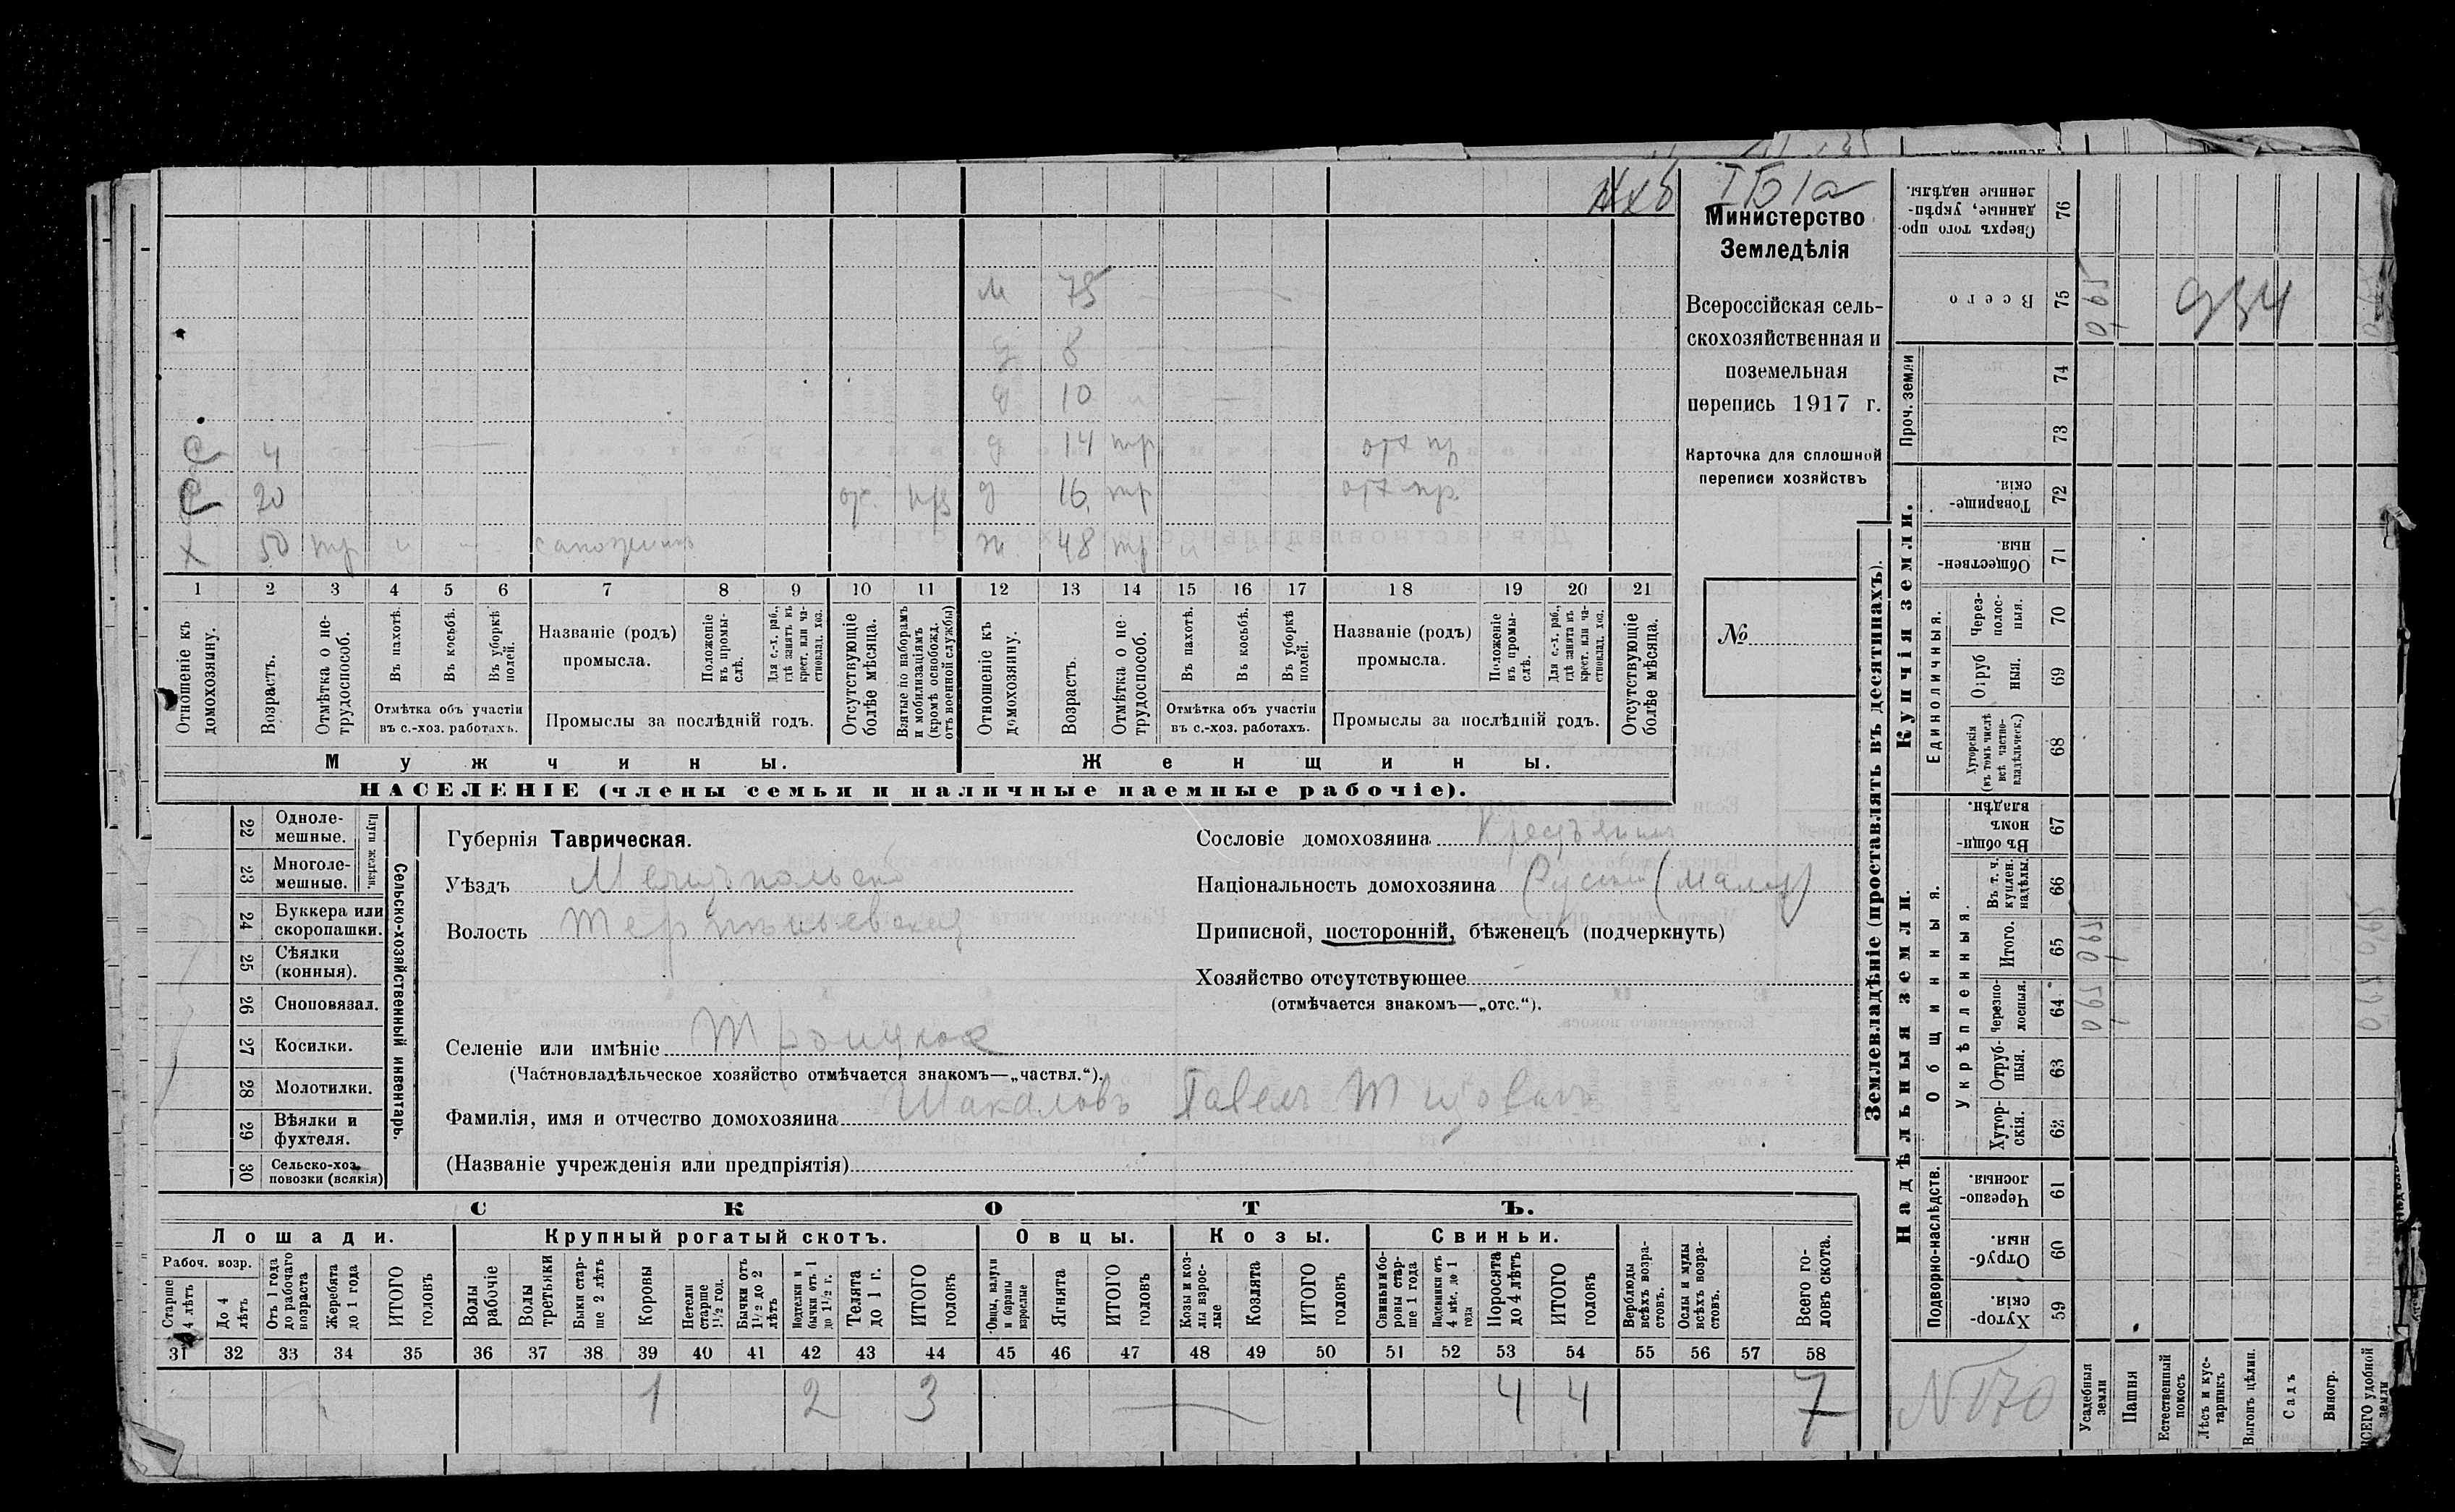 I Б 1 а
Министерство
Земледѣлія
Всероссійская сель-
скохозяйственная и
поземельная
перепись 1917 г.
Карточка для сплошной
переписи хозяйствъ
№
м 75
д 8
д 10
с 4 д 14 тр
с 20 д 16 тр
х 50 тр сапожникъ ж 48 тр
1 2 3 4 5 6 7 8 9 10 11 12 13 14 15 16 17 18 19 20 21
Отношеніе къ домохозяину.
Возрастъ.
Отмѣтка о не-трудоспособ.
Въ пахотѣ.
Въ косьбѣ.
Въ уборкѣ полей.
Отмѣтка объ участіи
въ с.-хоз. работахъ.
Названіе (родъ)
промысла.
Положеніе въ промы-слѣ.
Для с.-х. раб., гдѣ занятъ въ крест. или ча-стновлад. хоз.
Промыслы за послѣдній годъ.
Отсутствующіе болѣе мѣсяца.
Взятые по наборамъ и мобилизаціямъ (кромѣ освобожд. отъ военной службы)
Отношеніе къ домохозяину.
Возрастъ.
Отмѣтка о не-трудоспособ.
Въ пахотѣ.
Въ косьбѣ.
Въ уборкѣ полей.
Отмѣтка объ участіи
въ с.-хоз. работахъ.
Названіе (родъ)
промысла.
Положеніе въ промы-слѣ.
Для с.-х. раб., гдѣ занята въ крест. или ча-стновлад. хоз.
Промыслы за послѣдній годъ.
Отсутствующіе болѣе мѣсяца.
Мужчины. Женщины.
НАСЕЛЕНІЕ (члены семьи и наличные наемные рабочіе).
22 Одноле-мешные.
23 Многоле-мешные.
Плуги желѣзн.
24 Буккера или скоропашки.
25 Сѣялки (конныя).
26 Сноповязал.
27 Косилки.
28 Молотилки.
29 Вѣялки и фухтеля.
30 Сельско-хоз. повозки (всякія)
Сельско-хозяйственный инвентарь.
Губернія Таврическая.
Уѣздъ
Волость
Селеніе или имѣніе Троицкое
(Частновладѣльческое хозяйство отмѣчается знакомъ—„частвл.“).
Фамилія, имя и отчество домохозяина Шакаловъ Павелъ Титовичъ
(Названіе учрежденія или предпріятія)
Сословіе домохозяина
Національность домохозяина Русскій (мало)
Приписной, посторонній, бѣженецъ (подчеркнуть)
Хозяйство отсутствующее
(отмѣчается знакомъ—„отс.“).
СКОТЪ.
Лошади. Крупный рогатый скотъ. Овцы. Козы. Свиньи.
Рабоч. возр.
Старше 4 лѣтъ
До 4 лѣтъ
Отъ 1 года до рабочаго возраста
Жеребята до 1 года
ИТОГО головъ
Волы рабочіе
Волы третьяки
Быки стар-ше 2 лѣтъ
Коровы
Нетели старше 1½ год.
Бычки отъ 1½ до 2 лѣтъ
Подтелки и бычки отъ 1 до 1½ г.
Телята до 1 г.
ИТОГО головъ
Овцы, валухи и бараны взрослые
Ягнята
ИТОГО головъ
Козы и коз-лы взрос-лые
Козлята
ИТОГО головъ
Свиньи и бо-ровы стар-ше 1 года
Подсвинки отъ 4 мѣс. до 1 года
Поросята до 4 лѣтъ
ИТОГО головъ
Верблюды всѣхъ возра-стовъ.
Ослы и мулы всѣхъ возра-стовъ.
Всего го-ловъ скота.
31 32 33 34 35 36 37 38 39 40 41 42 43 44 45 46 47 48 49 50 51 52 53 54 55 56 57 58
1 2 3 4 4 7
Землевладѣніе (проставлять въ десятинахъ).
Купчія земли.
Надѣльныя земли.
76 Сверхъ того про-данные, укрѣп-ленные надѣлы.
75 Всего 590
934
Проч. земли
74
73
72 Товарище-скія.
71 Обществен-ныя.
Единоличныя.
70 Через-полос-ныя.
69 Отруб-ныя.
68 Хуторскія (въ томъ числѣ всѣ частно-владѣльческ.)
Общинныя.
67 Въ общи-номъ владѣн.
Укрѣпленныя.
66 Въ т. ч. куплен. надѣлы.
65 Итого. 590
64 Черезпо-лосныя. 590
63 Отруб-ныя.
62 Хутор-скія.
Подворно-наслѣдств.
61 Черезпо-лосныя.
60 Отруб-ныя.
59 Хутор-скія.
N 170
Усадебныя земли
Пашня
Естественный покосъ
Лѣсъ и кус-тарникъ
Выгонъ цѣлин.
Садъ
Виногр.
ВСЕГО удобной земли